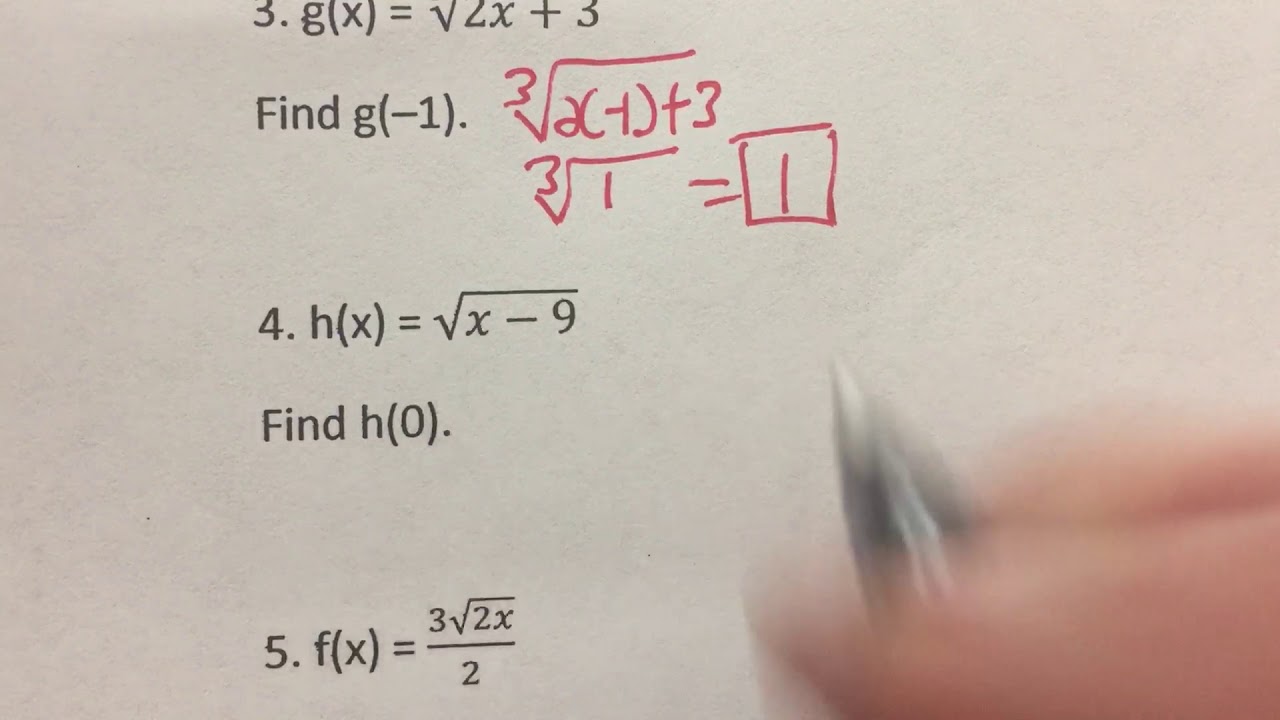 3. g(x) = √2x + 3
Find g(−1). ∛2(-1)+3
∛1 = 1
4. h(x) = √x − 9
Find h(0).
5. f(x) = 3√2x / 2